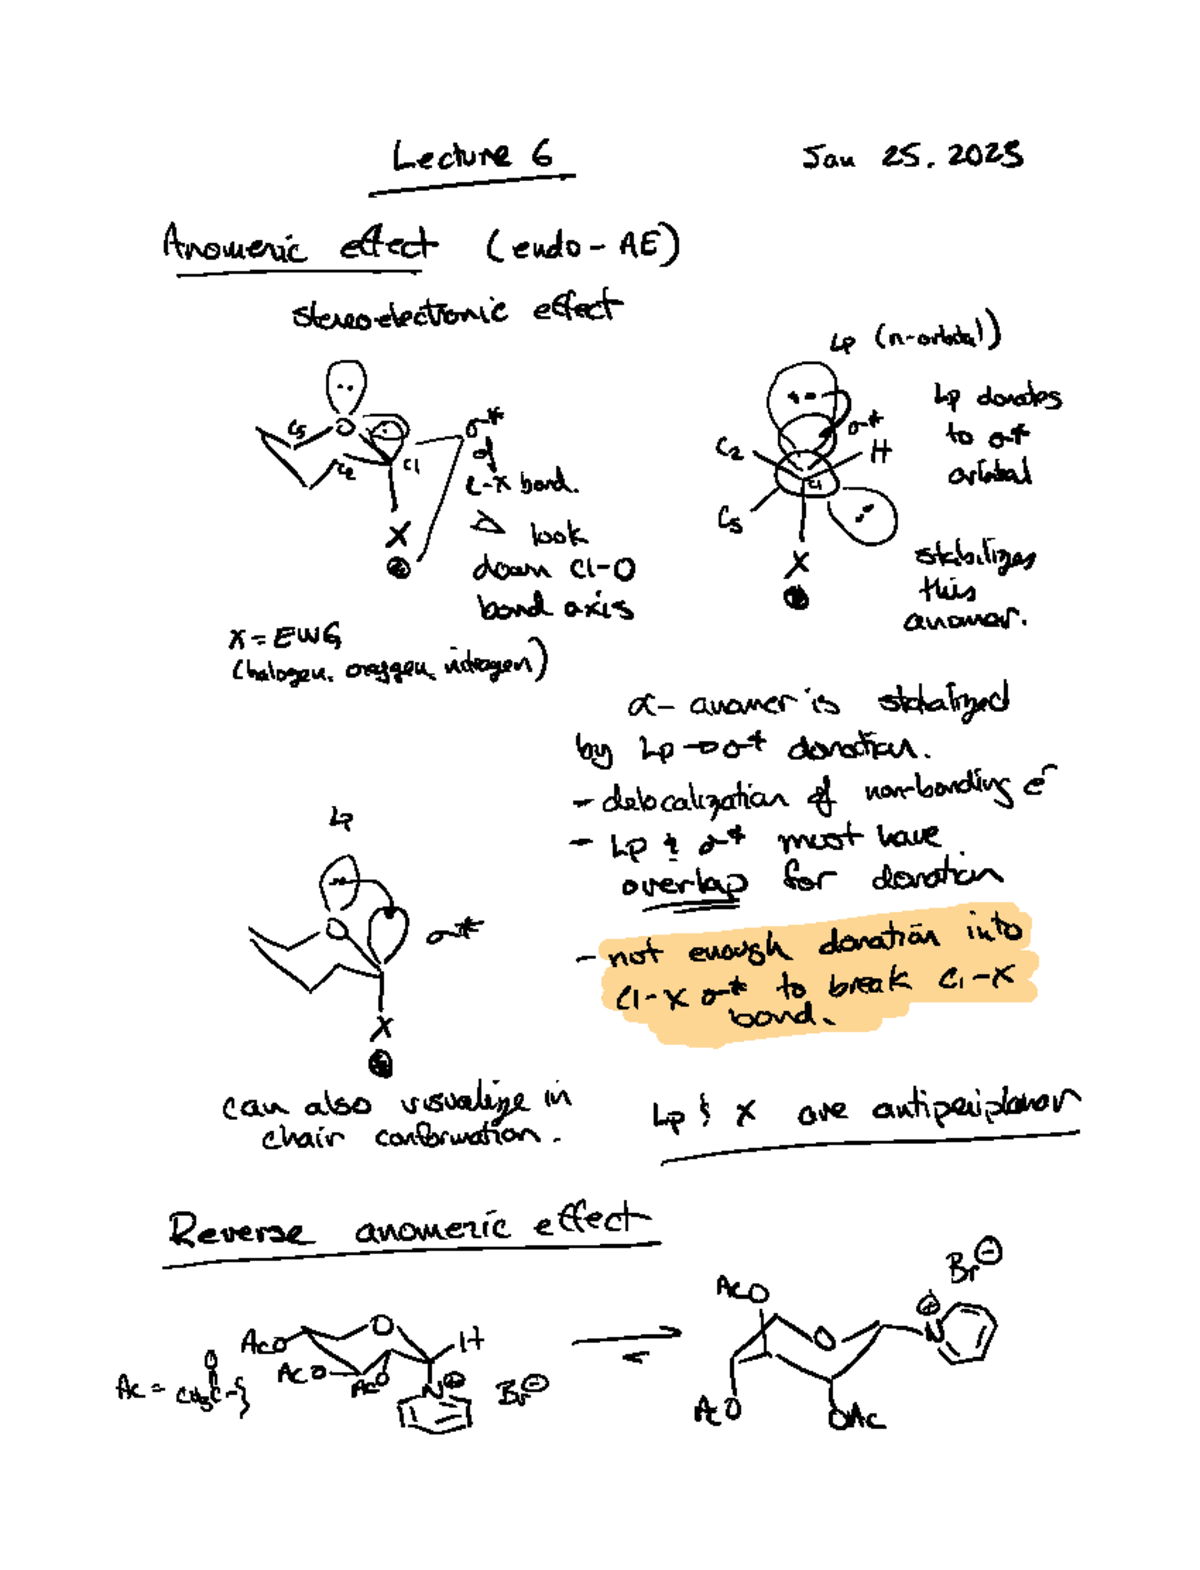 Lecture 6
Jan 25. 2023
Anomeric effect (endo-AE)
stereoelectronic effect
C5
O
C2
C1
X
σ*
of
C-X bond.
look
down C1-O
bond axis
X = EWG
(halogen, oxygen, nitrogen)
Lp (n-orbital)
σ*
C2
H
C1
C5
X
Lp donates
to σ*
orbital
stabilizes
this
anomer.
α- anomer is stabalized
by Lp → σ* donation.
- delocalization of non-bonding e⁻
- Lp & σ* must have
overlap for donation
- not enough donation into
C1-X σ* to break C1-X
bond.
Lp
O
σ*
X
can also visualize in
chair conformation.
Lp & X are antiperiplanar
Reverse anomeric effect
AcO
O
H
AcO
AcO
N⊕
Br⊖
O
Ac = CH3C-
AcO
O
⊕
N
Br⊖
AcO
OAc